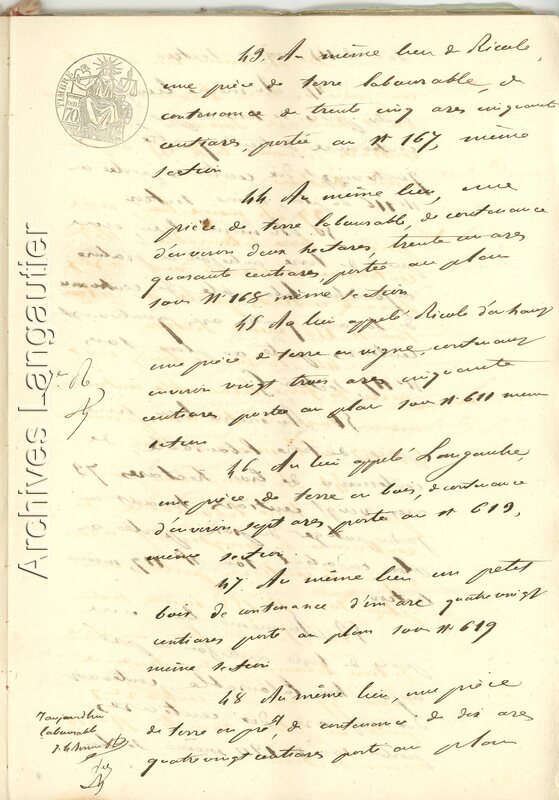 TIMBRE
70
43. Au même lieu de Ricole,
une pièce de terre labourable, de
contenance de trente cinq ares cinquante
centiares, portée au N° 167, même
section
44. Au même lieu, une
pièce de terre labourable, de contenance
d'environ deux hectares, trente un ares
quarante centiares, portée au plan
sous N° 168 même section
45 Au lieu appelé Ricole d'en haut
une pièce de terre en vigne, contenant
environ vingt trois ares cinquante
centiares portée au plan sous N° 611 même
section
46 Au lieu appelé
une pièce de terre en bois, de contenance
d'environ sept ares portée au N° 613,
même section.
47. Au même lieu un petit
bois de contenance d'un are quatre vingt
centiares porté au plan sous N° 619
même section
48 Au même lieu, une pièce
de terre en pré, de contenance de dix ares
quatre vingt centiares porté au plan
aujourd'hui
labourable
Archives Langautier